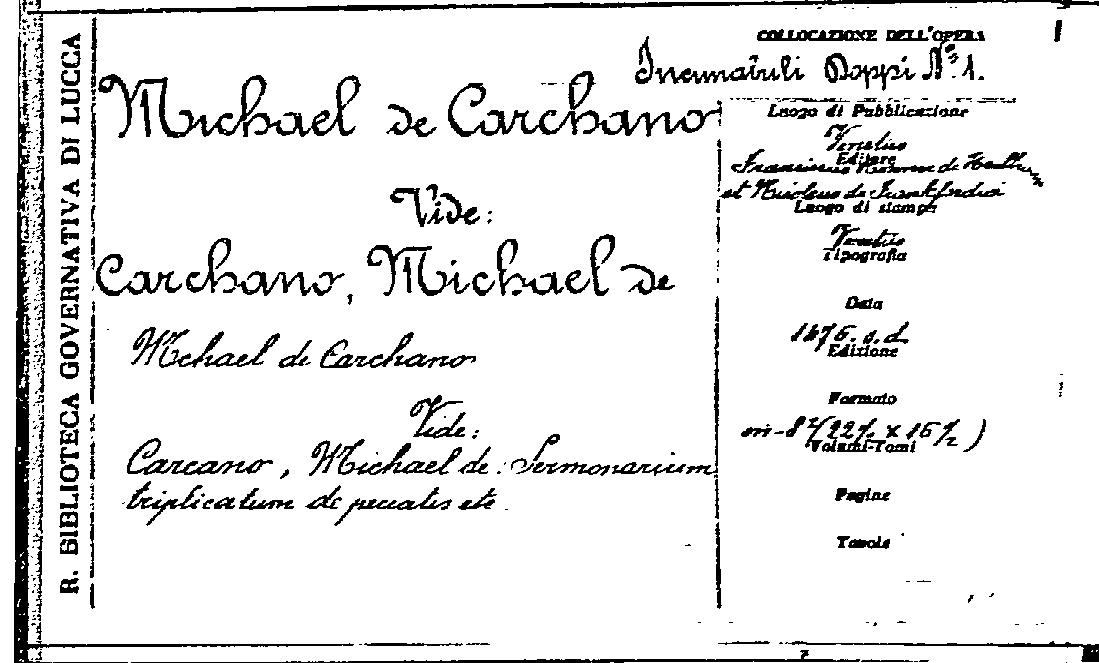 R. BIBLIOTECA GOVERNATIVA DI LUCCA
COLLOCAZIONE DELL'OPERA
Incunabuli Doppi N° 1.
Michael de Carchano
Vide:
Carchano, Michael de
Michael de Carchano
Vide:
Carcano, Michael de: Sermonarium
triplicatum de peccatis etc
Luogo di Pubblicazione
Venetiis
Editore
Franciscus de
et Nicolaus de
Luogo di stampa
Venetiis
Tipografia
Data
1476. s.d.
Edizione
Formato
in-8° (22½ x 16½)
Volumi-Tomi
Pagine
Tavole